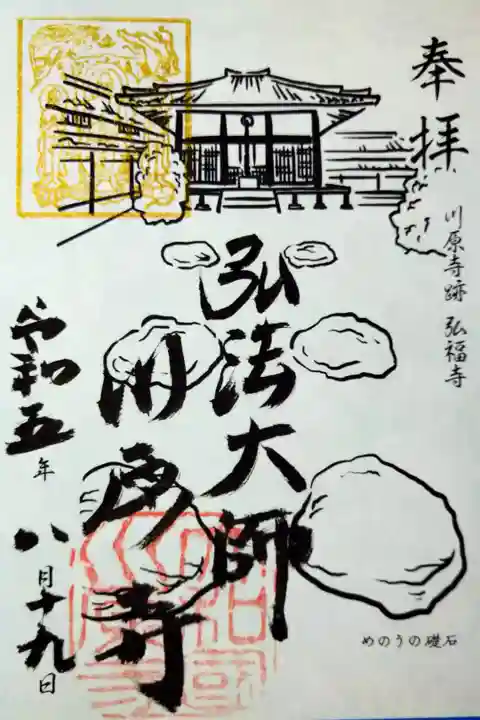 奉拝
川原寺跡 弘福寺
弘法大師
川原寺
令和五年
八月十九日
めのうの礎石